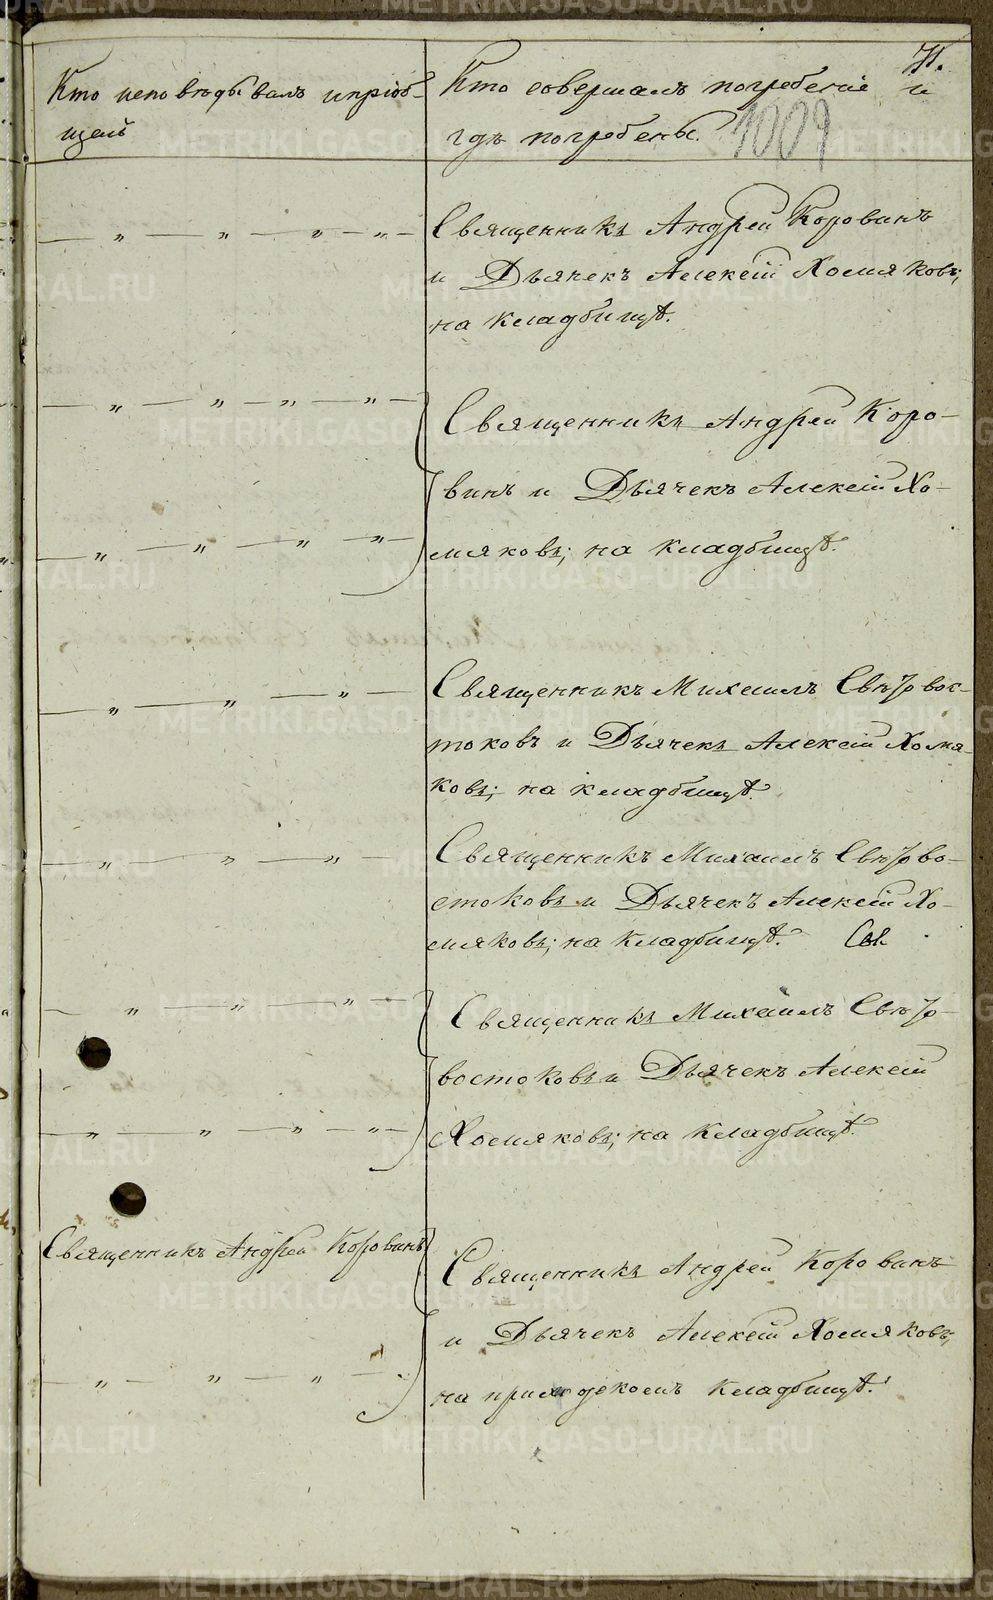 71.
Кто исповѣдывалъ и пріоб-
щалъ
Кто совершалъ погребеніе и
гдѣ погребены.
1009
Священникъ Андрей Коровинъ
и Дьячекъ Алексѣй Хомяковъ;
на кладбищѣ.
Священникъ Андрей Коро-
винъ и Дьячекъ Алексѣй Хо-
мяковъ; на кладбищѣ.
Священникъ Михаилъ Свѣтовос-
токовъ и Дьячекъ Алексѣй Хомя-
ковъ; на кладбищѣ.
Священникъ Михаилъ Свѣтово-
стоковъ и Дьячекъ Алексѣй Хо-
мяковъ; на кладбищѣ.
Священникъ Михаилъ Свѣто-
востоковъ и Дьячекъ Алексѣй
Хомяковъ; на кладбищѣ.
Священникъ Андрей Коровинъ
Священникъ Андрей Коровинъ
и Дьячекъ Алексѣй Хомяковъ;
на приходскомъ кладбищѣ.
METRIKI.GASO-URAL.RU